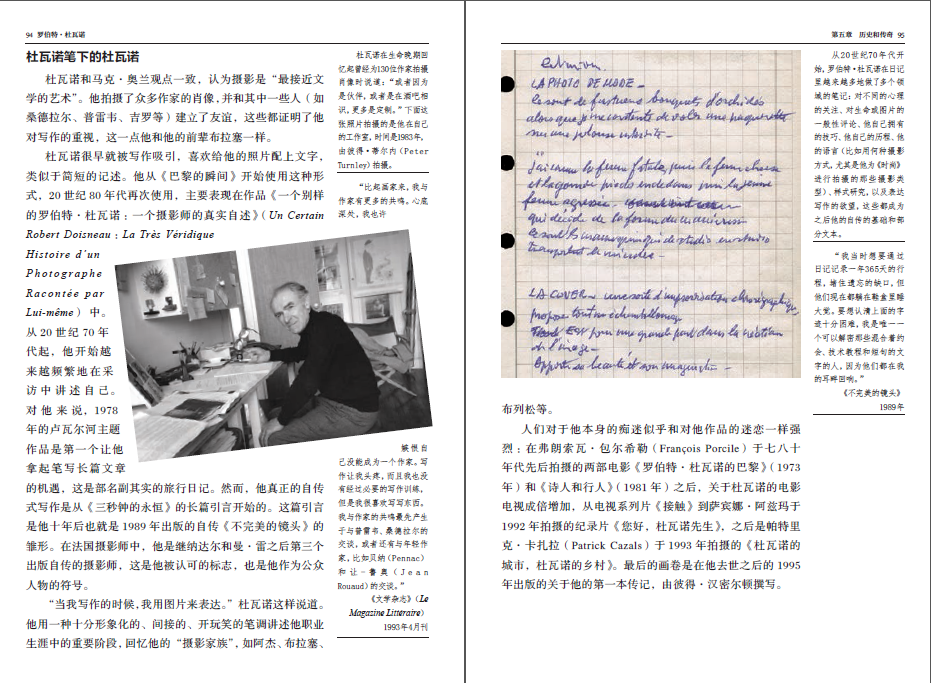 94 罗伯特·杜瓦诺
杜瓦诺笔下的杜瓦诺
杜瓦诺和马克·奥兰观点一致，认为摄影是“最接近文
学的艺术”。他拍摄了众多作家的肖像，并和其中一些人（如
桑德拉尔、普雷韦、吉罗等）建立了友谊，这些都证明了他
对写作的重视，这一点他和他的前辈布拉塞一样。
杜瓦诺很早就被写作吸引，喜欢给他的照片配上文字，
类似于简短的记述。他从《巴黎的瞬间》开始使用这种形
式，20世纪80年代再次使用，主要表现在作品《一个别样
的罗伯特·杜瓦诺：一个摄影师的真实自述》（Un Certain
Robert Doisneau：La Très Véridique
Histoire d'un
Photographe
Racontée par
Lui-même）中。
从20世纪70年
代起，他开始越
来越频繁地在采
访中讲述自己。
对他来说，1978
年的卢瓦尔河主题
作品是第一个让他
拿起笔写长篇文章
的机遇，这是部名副其实的旅行日记。然而，他真正的自传
式写作是从《三秒钟的永恒》的长篇引言开始的。这篇引言
是他十年后也就是1989年出版的自传《不完美的镜头》的
雏形。在法国摄影师中，他是继纳达尔和曼·雷之后第三个
出版自传的摄影师，这是他被认可的标志，也是他作为公众
人物的符号。
“当我写作的时候，我用图片来表达。”杜瓦诺这样说道。
他用一种十分形象化的、间接的、开玩笑的笔调讲述他职业
生涯中的重要阶段，回忆他的“摄影家族”，如阿杰、布拉塞、
杜瓦诺在生命晚期回
忆起曾经为130位作家拍摄
肖像时说道：“或者因为
是伙伴，或者是在酒吧相
识，更多是定制。”下面这
张照片拍摄的是他在自己
的工作室，时间是1983年，
由彼得·蒂尔内（Peter
Turnley）拍摄。
“比起画家来，我与
作家有更多的共鸣。心底
深处，我也许
嫉恨自
己没能成为一个作家。写
作让我头疼，而且我也没
有经过必要的写作训练，
但是我很喜欢写写东西。
我与作家的共鸣最先产生
于与普雷韦、桑德拉尔的
交谈，或者还有与年轻作
家，比如贝纳（Pennac）
和让-鲁奥（Jean
Rouaud）的交谈。”
《文学杂志》（Le
Magazine Littéraire）
1993年4月刊
第五章 历史和传奇 95
LA PHOTO DE MODE -
ce sont de fastueux bouquets d'orchidés
LA COVER
布列松等。
人们对于他本身的痴迷似乎和对他作品的迷恋一样强
烈：在弗朗索瓦·包尔希勒（François Porcile）于七八十
年代先后拍摄的两部电影《罗伯特·杜瓦诺的巴黎》（1973
年）和《诗人和行人》（1981年）之后，关于杜瓦诺的电影
电视成倍增加，从电视系列片《接触》到萨宾娜·阿兹玛于
1992年拍摄的纪录片《您好，杜瓦诺先生》，之后是帕特里
克·卡扎拉（Patrick Cazals）于1993年拍摄的《杜瓦诺的
城市，杜瓦诺的乡村》。最后的画卷是在他去世之后的1995
年出版的关于他的第一本传记，由彼得·汉密尔顿撰写。
从20世纪70年代开
始，罗伯特·杜瓦诺在日记
里越来越多地做了多个领
域的笔记：对不同的心理
的关注、对生命或图片的
一般性评论、他自己拥有
的技巧、他自己的历程、他
的语言（比如用何种摄影
方式，尤其是他为《时尚》
进行拍摄的那些摄影类
型）、样式研究，以及表达
写作的欲望，这些都成为
之后他的自传的基础和部
分文本。
“我当时想要通过
日记记录一年365天的行
程，堵住遗忘的缺口，但
他们现在都躺在鞋盒里睡
大觉。要想认清上面的字
迹十分困难，我是唯一一
个可以解密那些混合着约
会、技术教程和短句的文
字的人，因为他们都在我
的耳畔回响。”
《不完美的镜头》
1989年